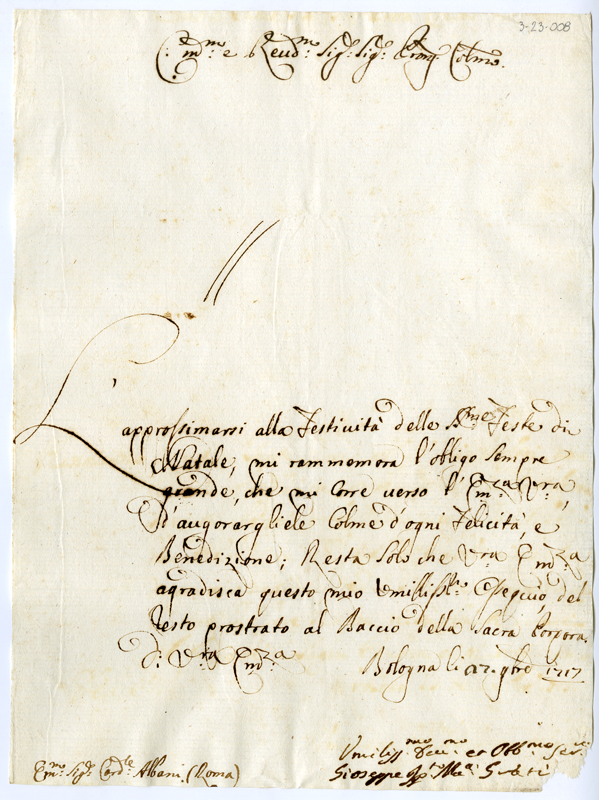 3-23-008
E:mo e Reud:mo Sig: Sig: Pron: Colmo.
L'approssimarsi alla Festività delle S:me Feste di
Natale, mi rammemora l'obligo sempre
grande, che mi corre verso l'Em:za V:ra,
d'augorargliele Colme d'ogni Felicità, e
Benedizione; Resta Solo che V:ra Em:za
agradisca questo mio Umilliss:o Ossequio, del
resto prostrato al Baccio della Sacra Porpora
di V:ra Em:za
Bologna li 1717
Umiliss:mo et Obb:mo Ser:
E:mo Sig: Card:le Albani (Roma)
Gioseppe M:a